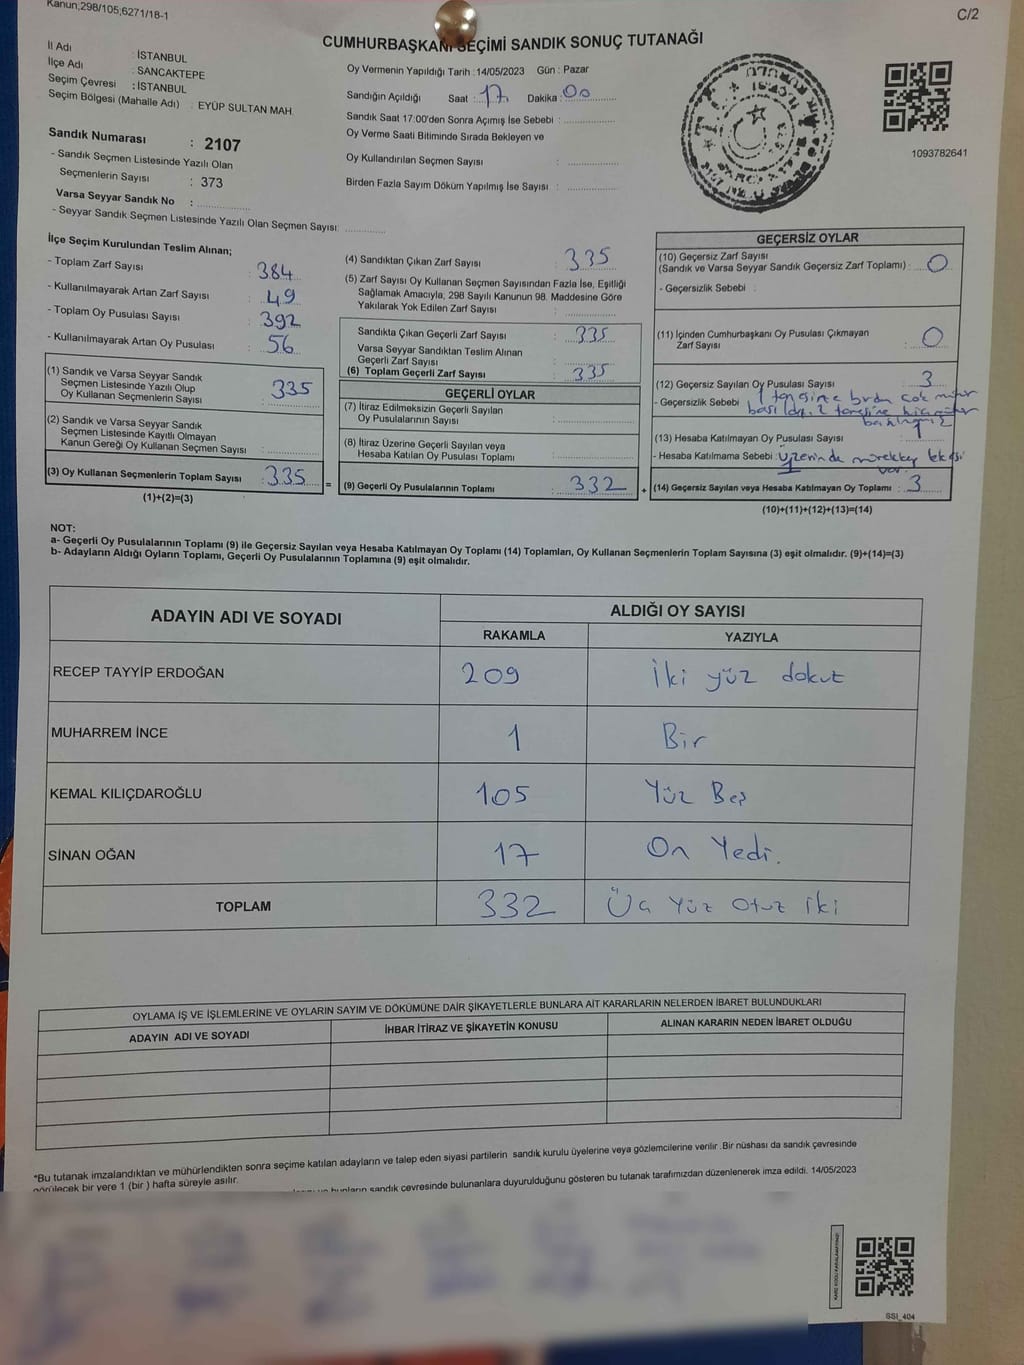 Kanun;298/105;6271/18-1
C/2
CUMHURBAŞKANI SEÇİMİ SANDIK SONUÇ TUTANAĞI
İl Adı : İSTANBUL
İlçe Adı : SANCAKTEPE
Seçim Çevresi : İSTANBUL
Seçim Bölgesi (Mahalle Adı) : EYÜP SULTAN MAH.
Sandık Numarası : 2107
- Sandık Seçmen Listesinde Yazılı Olan
Seçmenlerin Sayısı : 373
Varsa Seyyar Sandık No :
- Seyyar Sandık Seçmen Listesinde Yazılı Olan Seçmen Sayısı:
Oy Vermenin Yapıldığı Tarih :14/05/2023 Gün : Pazar
Sandığın Açıldığı Saat : 17 Dakika : 00
Sandık Saat 17:00'den Sonra Açımış İse Sebebi :
Oy Verme Saati Bitiminde Sırada Bekleyen ve
Oy Kullandırılan Seçmen Sayısı :
Birden Fazla Sayım Döküm Yapılmış İse Sayısı :
1093782641
İlçe Seçim Kurulundan Teslim Alınan;
- Toplam Zarf Sayısı : 384
- Kullanılmayarak Artan Zarf Sayısı : 49
- Toplam Oy Pusulası Sayısı : 392
- Kullanılmayarak Artan Oy Pusulası : 56
(1) Sandık ve Varsa Seyyar Sandık
Seçmen Listesinde Yazılı Olup
Oy Kullanan Seçmenlerin Sayısı : 335
(2) Sandık ve Varsa Seyyar Sandık
Seçmen Listesinde Kayıtlı Olmayan
Kanun Gereği Oy Kullanan Seçmen Sayısı :
(3) Oy Kullanan Seçmenlerin Toplam Sayısı : 335 =
(1)+(2)=(3)
(4) Sandıktan Çıkan Zarf Sayısı : 335
(5) Zarf Sayısı Oy Kullanan Seçmen Sayısından Fazla İse, Eşitliği
Sağlamak Amacıyla, 298 Sayılı Kanunun 98. Maddesine Göre
Yakılarak Yok Edilen Zarf Sayısı :
Sandıkta Çıkan Geçerli Zarf Sayısı : 335
Varsa Seyyar Sandıktan Teslim Alınan
Geçerli Zarf Sayısı :
(6) Toplam Geçerli Zarf Sayısı : 335
GEÇERLİ OYLAR
(7) İtiraz Edilmeksizin Geçerli Sayılan
Oy Pusulasının Sayısı :
(8) İtiraz Üzerine Geçerli Sayılan veya
Hesaba Katılan Oy Pusulası Toplamı :
(9) Geçerli Oy Pusulalarının Toplamı : 332 +
GEÇERSİZ OYLAR
(10) Geçersiz Zarf Sayısı
(Sandık ve Varsa Seyyar Sandık Geçersiz Zarf Toplamı) : 0
- Geçersizlik Sebebi :
(11) İçinden Cumhurbaşkanı Oy Pusulası Çıkmayan
Zarf Sayısı : 0
(12) Geçersiz Sayılan Oy Pusulası Sayısı : 3
- Geçersizlik Sebebi 1 tanesine birden çok mühür
basıldı, 2 tanesine hiç mühür
(13) Hesaba Katılmayan Oy Pusulası Sayısı :
- Hesaba Katılmama Sebebi : üzerinde mürekkep lekesi
var.
(14) Geçersiz Sayılan veya Hesaba Katılmayan Oy Toplamı : 3
(10)+(11)+(12)+(13)=(14)
NOT:
a- Geçerli Oy Pusulalarının Toplamı (9) ile Geçersiz Sayılan veya Hesaba Katılmayan Oy Toplamı (14) Toplamları, Oy Kullanan Seçmenlerin Toplam Sayısına (3) eşit olmalıdır. (9)+(14)=(3)
b- Adayların Aldığı Oyların Toplamı, Geçerli Oy Pusulalarının Toplamına (9) eşit olmalıdır.
ADAYIN ADI VE SOYADI
ALDIĞI OY SAYISI
RAKAMLA YAZIYLA
RECEP TAYYİP ERDOĞAN 209 İki yüz dokuz
MUHARREM İNCE 1 Bir
KEMAL KILIÇDAROĞLU 105 Yüz Beş
SİNAN OĞAN 17 On Yedi.
TOPLAM 332 Üç Yüz Otuz iki
OYLAMA İŞ VE İŞLEMLERİNE VE OYLARIN SAYIM VE DÖKÜMÜNE DAİR ŞİKAYETLERLE BUNLARA AİT KARARLARIN NELERDEN İBARET BULUNDUKLARI
ADAYIN ADI VE SOYADI İHBAR İTİRAZ VE ŞİKAYETİN KONUSU ALINAN KARARIN NEDEN İBARET OLDUĞU
*Bu tutanak imzalandıktan ve mühürlendikten sonra seçime katılan adayların ve talep eden siyasi partilerin sandık kurulu üyelerine veya gözlemcilerine verilir .Bir nüshası da sandık çevresinde
görülecek bir yere 1 (bir ) hafta süreyle asılır.
bunların sandık çevresinde bulunanlara duyurulduğunu gösteren bu tutanak tarafımızdan düzenlenerek imza edildi. 14/05/2023
SSI_404